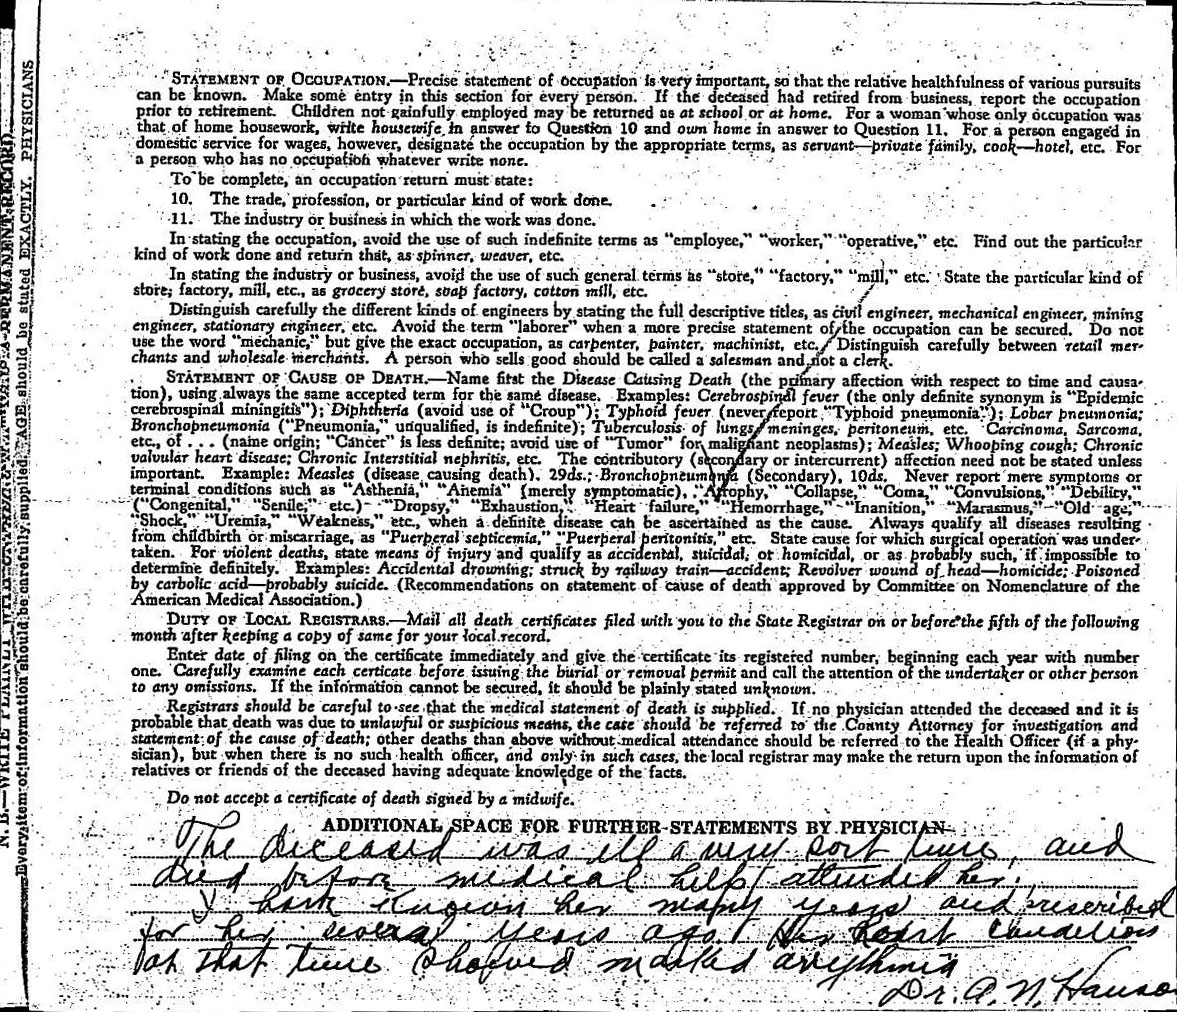 STATEMENT OF OCCUPATION.—Precise statement of occupation is very important, so that the relative healthfulness of various pursuits
can be known. Make some entry in this section for every person. If the deceased had retired from business, report the occupation
prior to retirement. Children not gainfully employed may be returned as at school or at home. For a woman whose only occupation was
that of home housework, write housewife in answer to Question 10 and own home in answer to Question 11. For a person engaged in
domestic service for wages, however, designate the occupation by the appropriate terms, as servant—private family, cook—hotel, etc. For
a person who has no occupation whatever write none.
To be complete, an occupation return must state:
10. The trade, profession, or particular kind of work done.
11. The industry or business in which the work was done.
In stating the occupation, avoid the use of such indefinite terms as "employee," "worker," "operative," etc. Find out the particular
kind of work done and return that, as spinner, weaver, etc.
In stating the industry or business, avoid the use of such general terms as "store," "factory," "mill," etc. State the particular kind of
store, factory, mill, etc., as grocery store, soap factory, cotton mill, etc.
Distinguish carefully the different kinds of engineers by stating the full descriptive titles, as civil engineer, mechanical engineer, mining
engineer, stationary engineer, etc. Avoid the term "laborer" when a more precise statement of the occupation can be secured. Do not
use the word "mechanic," but give the exact occupation, as carpenter, painter, machinist, etc. Distinguish carefully between retail mer-
chants and wholesale merchants. A person who sells good should be called a salesman and not a clerk.
STATEMENT OF CAUSE OF DEATH.—Name first the Disease Causing Death (the primary affection with respect to time and causa-
tion), using always the same accepted term for the same disease. Examples: Cerebrospinal fever (the only definite synonym is "Epidemic
cerebrospinal miningitis"); Diphtheria (avoid use of "Croup"); Typhoid fever (never report "Typhoid pneumonia"); Lobar pneumonia;
Bronchopneumonia ("Pneumonia," unqualified, is indefinite); Tuberculosis of lungs, meninges, peritoneum, etc. Carcinoma, Sarcoma,
etc., of . . . (name origin; "Cancer" is less definite; avoid use of "Tumor" for malignant neoplasms); Measles; Whooping cough; Chronic
valvular heart disease; Chronic Interstitial nephritis, etc. The contributory (secondary or intercurrent) affection need not be stated unless
important. Example: Measles (disease causing death), 29ds.; Bronchopneumonia (Secondary), 10ds. Never report mere symptoms or
terminal conditions such as "Asthenia," "Anemia" (merely symptomatic), "Atrophy," "Collapse," "Coma," "Convulsions," "Debility,"
("Congenital," "Senile," etc.) "Dropsy," "Exhaustion," "Heart failure," "Hemorrhage," "Inanition," "Marasmus," "Old age,"
"Shock," "Uremia," "Weakness," etc., when a definite disease can be ascertained as the cause. Always qualify all diseases resulting
from childbirth or miscarriage, as "Puerperal septicemia," "Puerperal peritonitis," etc. State cause for which surgical operation was under-
taken. For violent deaths, state means of injury and qualify as accidental, suicidal, or homicidal, or as probably such, if impossible to
determine definitely. Examples: Accidental drowning; struck by railway train—accident; Revolver wound of head—homicide; Poisoned
by carbolic acid—probably suicide. (Recommendations on statement of cause of death approved by Committee on Nomenclature of the
American Medical Association.)
DUTY OF LOCAL REGISTRARS.—Mail all death certificates filed with you to the State Registrar on or before the fifth of the following
month after keeping a copy of same for your local record.
Enter date of filing on the certificate immediately and give the certificate its registered number, beginning each year with number
one. Carefully examine each certicate before issuing the burial or removal permit and call the attention of the undertaker or other person
to any omissions. If the information cannot be secured, it should be plainly stated unknown.
Registrars should be careful to see that the medical statement of death is supplied. If no physician attended the deceased and it is
probable that death was due to unlawful or suspicious means, the case should be referred to the County Attorney for investigation and
statement of the cause of death; other deaths than above without medical attendance should be referred to the Health Officer (if a phy-
sician), but when there is no such health officer, and only in such cases, the local registrar may make the return upon the information of
relatives or friends of the deceased having adequate knowledge of the facts.
Do not accept a certificate of death signed by a midwife.
ADDITIONAL SPACE FOR FURTHER STATEMENTS BY PHYSICIAN
The deceased was ill a very sort time, and
died before medical help attended her.
I have known her many years and prescribed
for her several years ago. Her heart condition
at that time showed marked arrythmia
Dr. A. N. Hanso
N. B.—WRITE PLAINLY, WITH
PERMANENT RECORD.
Every item of information should be carefully supplied. AGE should be stated EXACTLY. PHYSICIANS